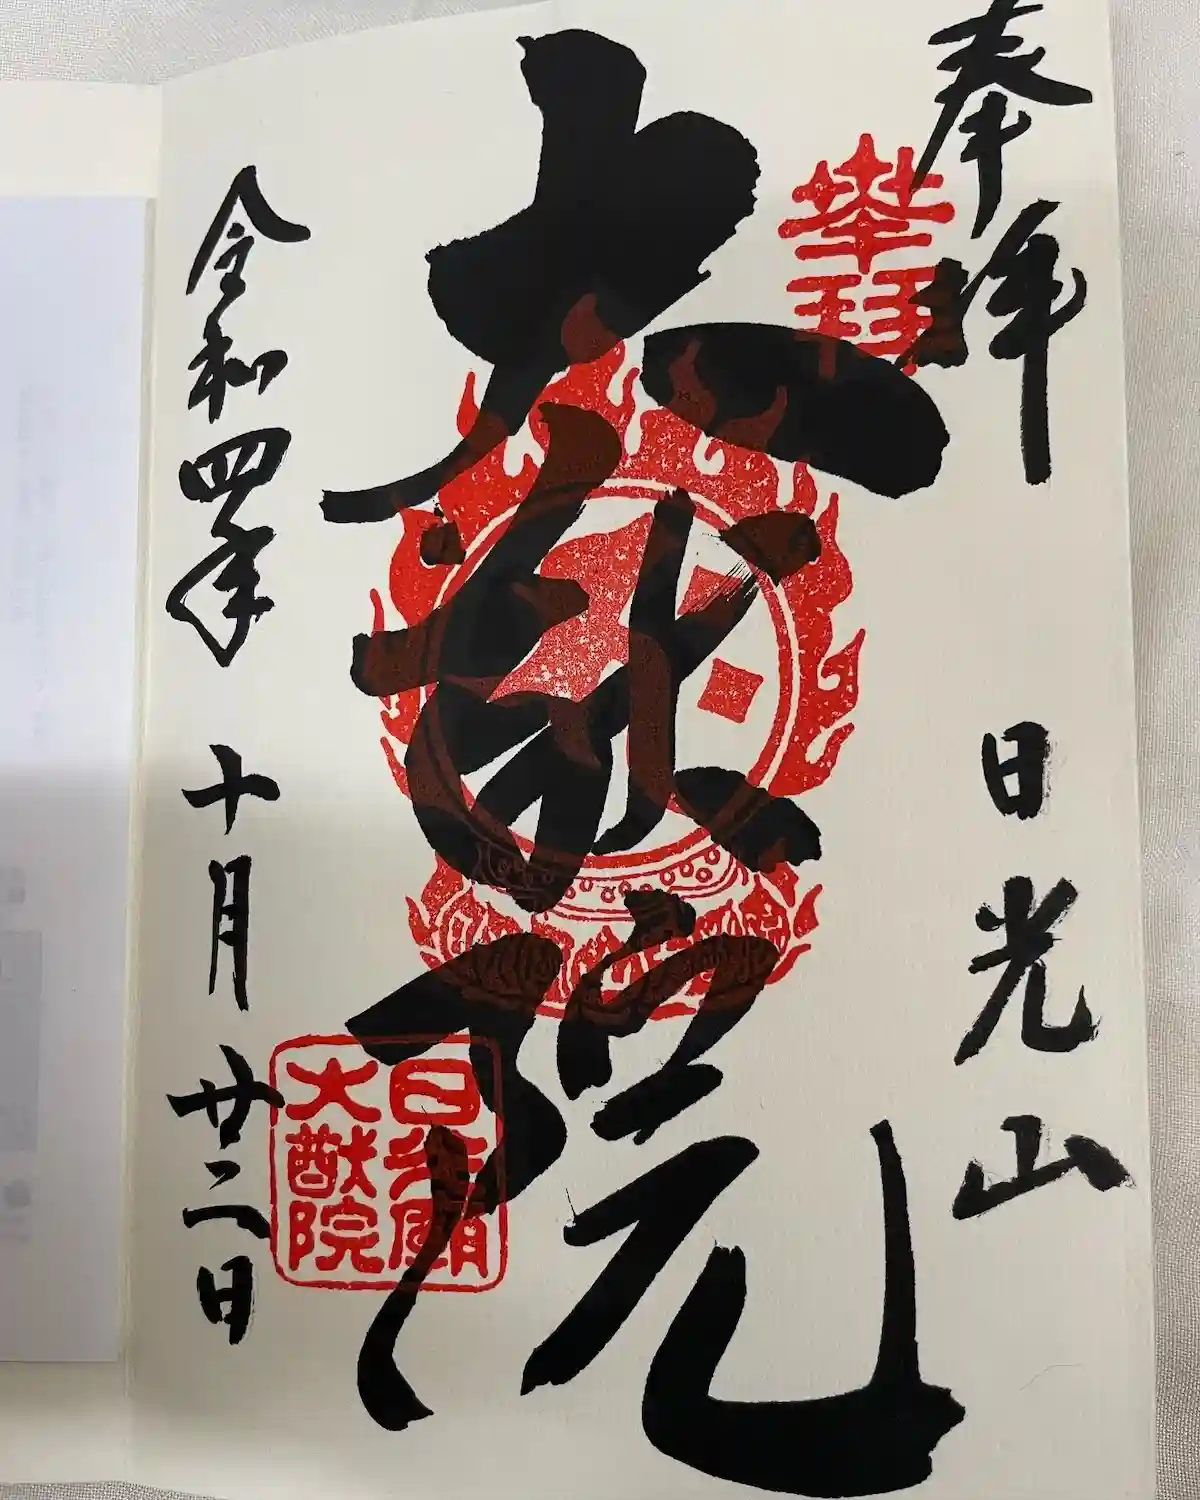 奉拝
日光山
奉拝
大猷院
日光廟
大猷院
令和四年
十月廿二日